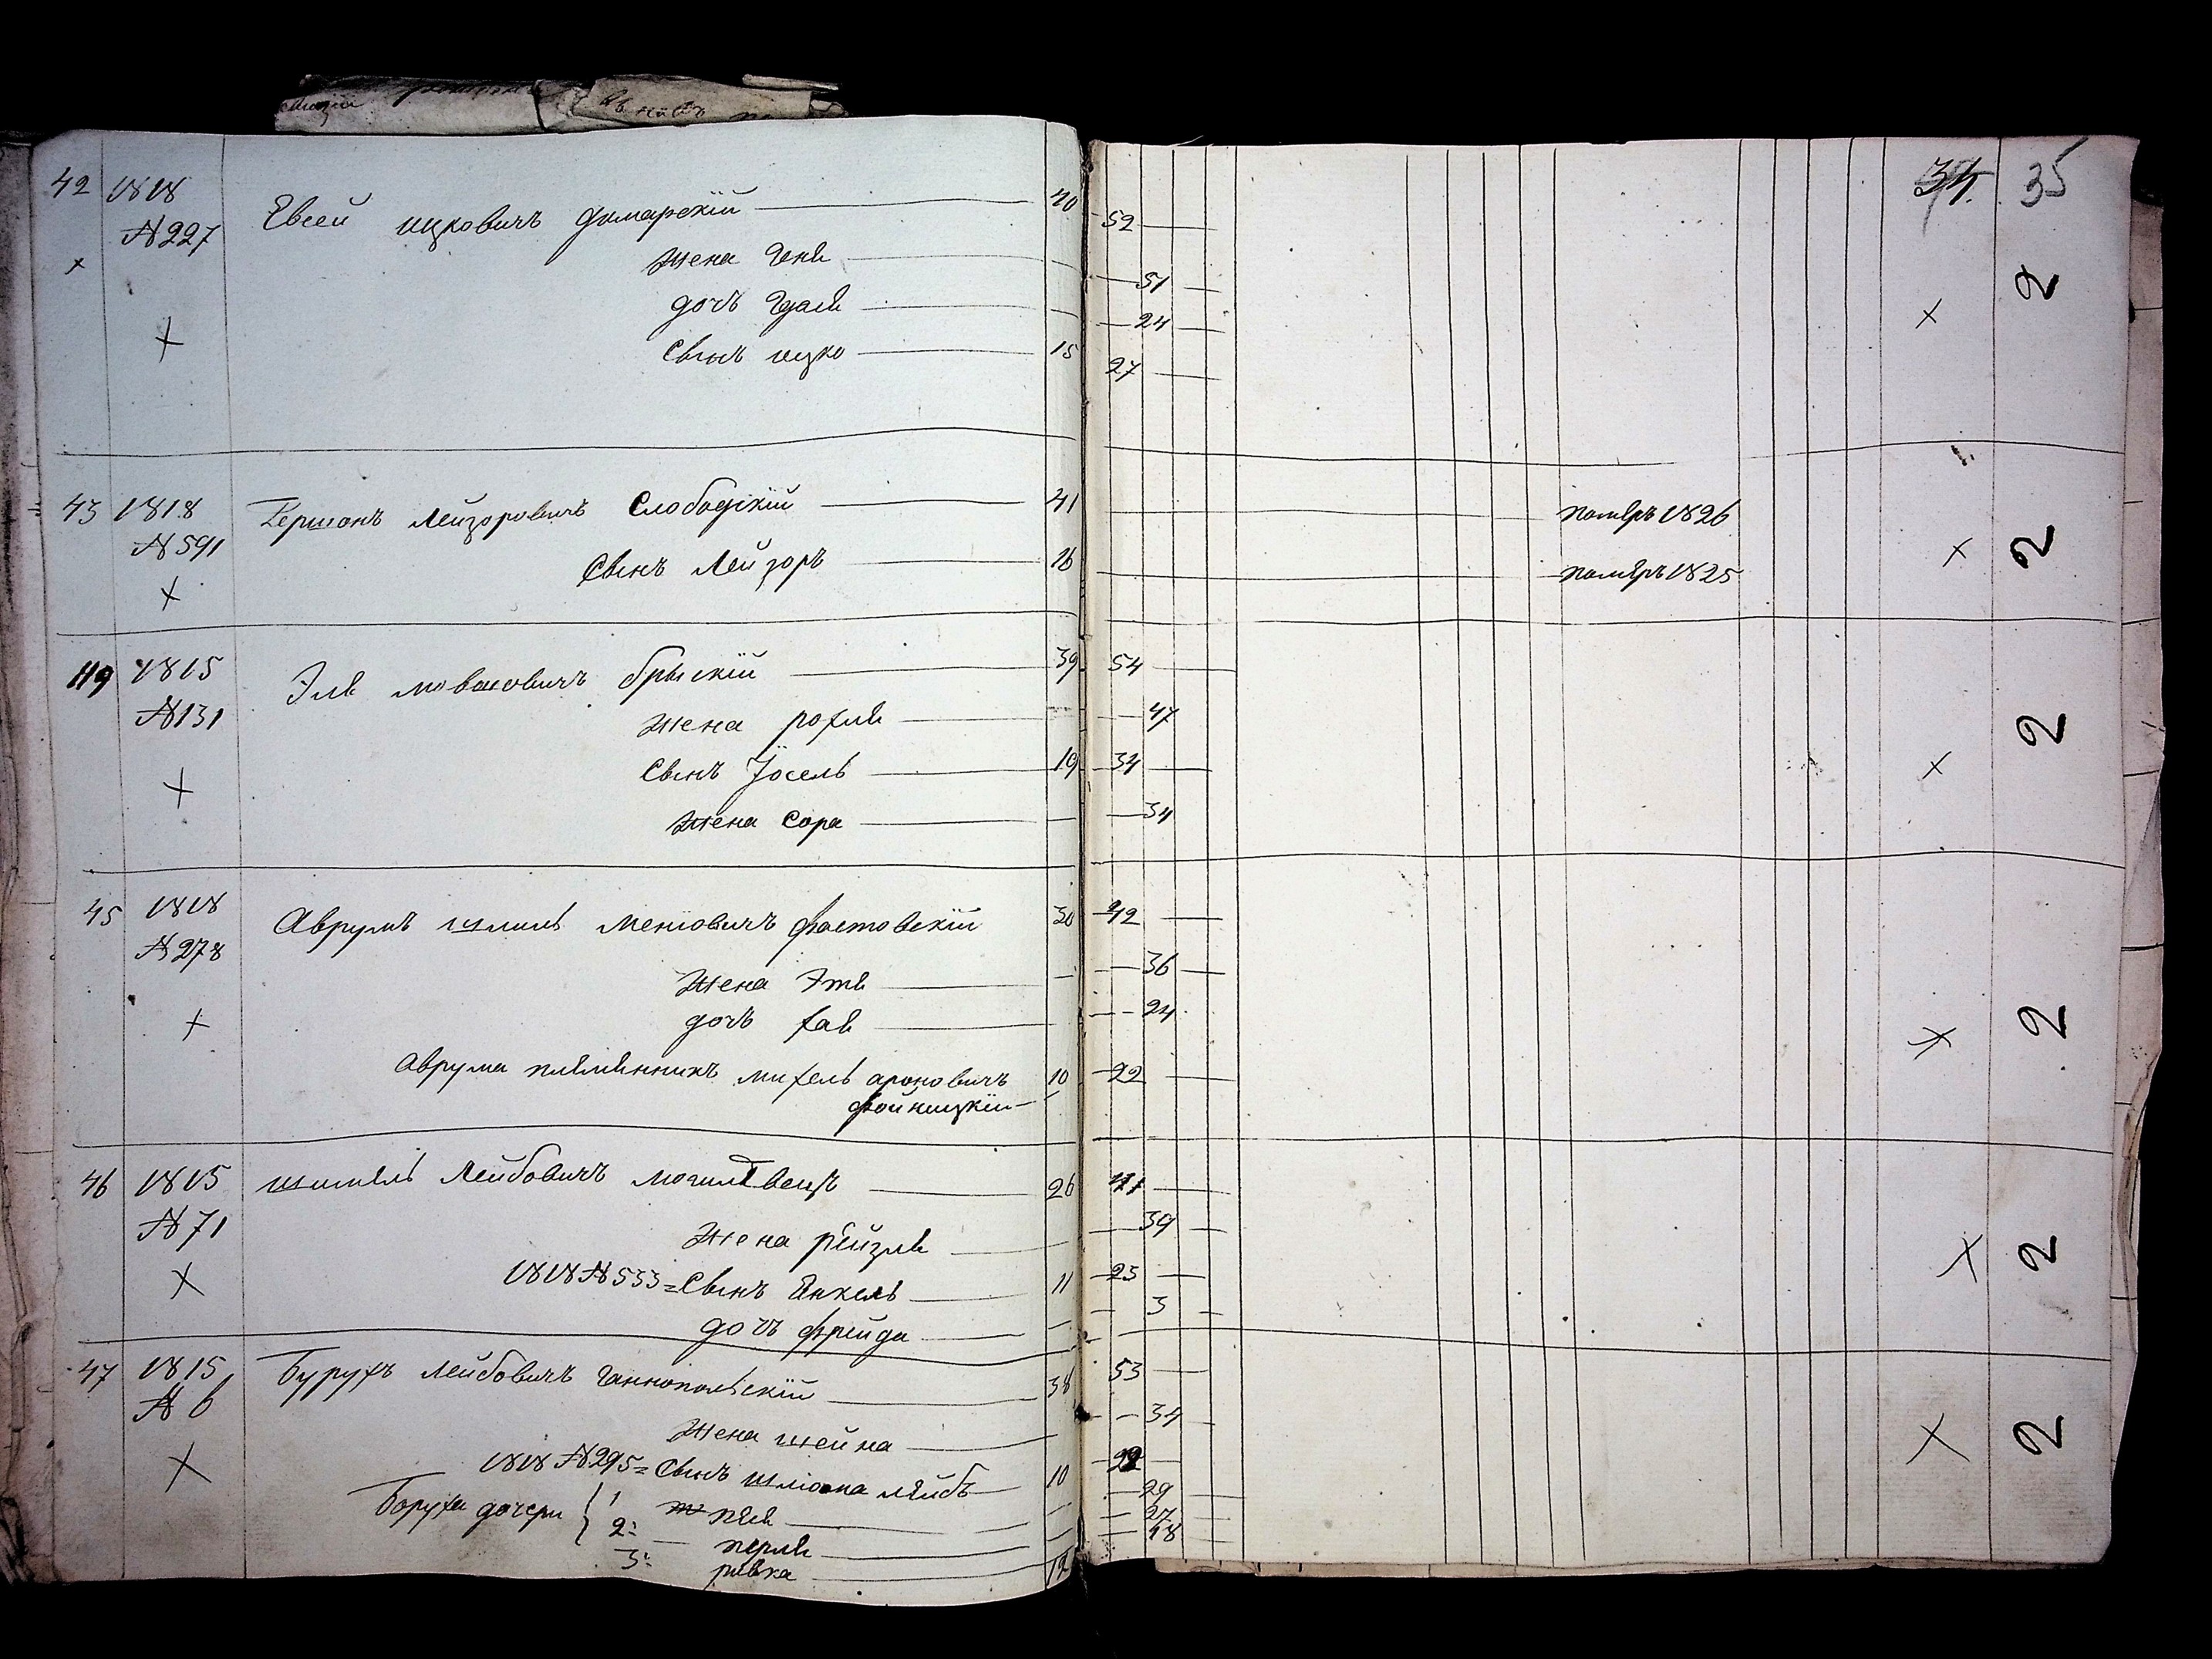 34. 35
42 1818 Евсей ицковичъ Димарскій 40 52
№227 жена Ени 51
дочь 24
Сынъ ицко 15 27
2
43 1818 Гершонъ Лейзоровичъ Слободскій 41 померъ 1826
№591 Сынъ Лейзоръ 16 померъ 1825
2
119 1815 Эля мовшовичъ брыскій 39 54
№131 жена рохля 47
Сынъ Іосель 19 34
жена Сора 34
2
45 1818 Аврумъ шлима фастовскій 30 42
№278 жена Этя 36
дочь хая 24
Аврума племянникъ михель ароновичъ 10 22
фойницкій
2
46 1815 Лейбовичъ могилевецъ 26 41
№71 жена рейзля 39
1818 №533 = Сынъ Янкель 11 23
дочь фрейда 3
2
47 1815 Бурухъ Лейбовичъ Ганнопольскій 38 53
№6 жена шейна 34
1818 №295 = Сынъ шліома лейбъ 10 22
Боруха дочери 1 29
2: перля 27
3: ривка 18
12
2